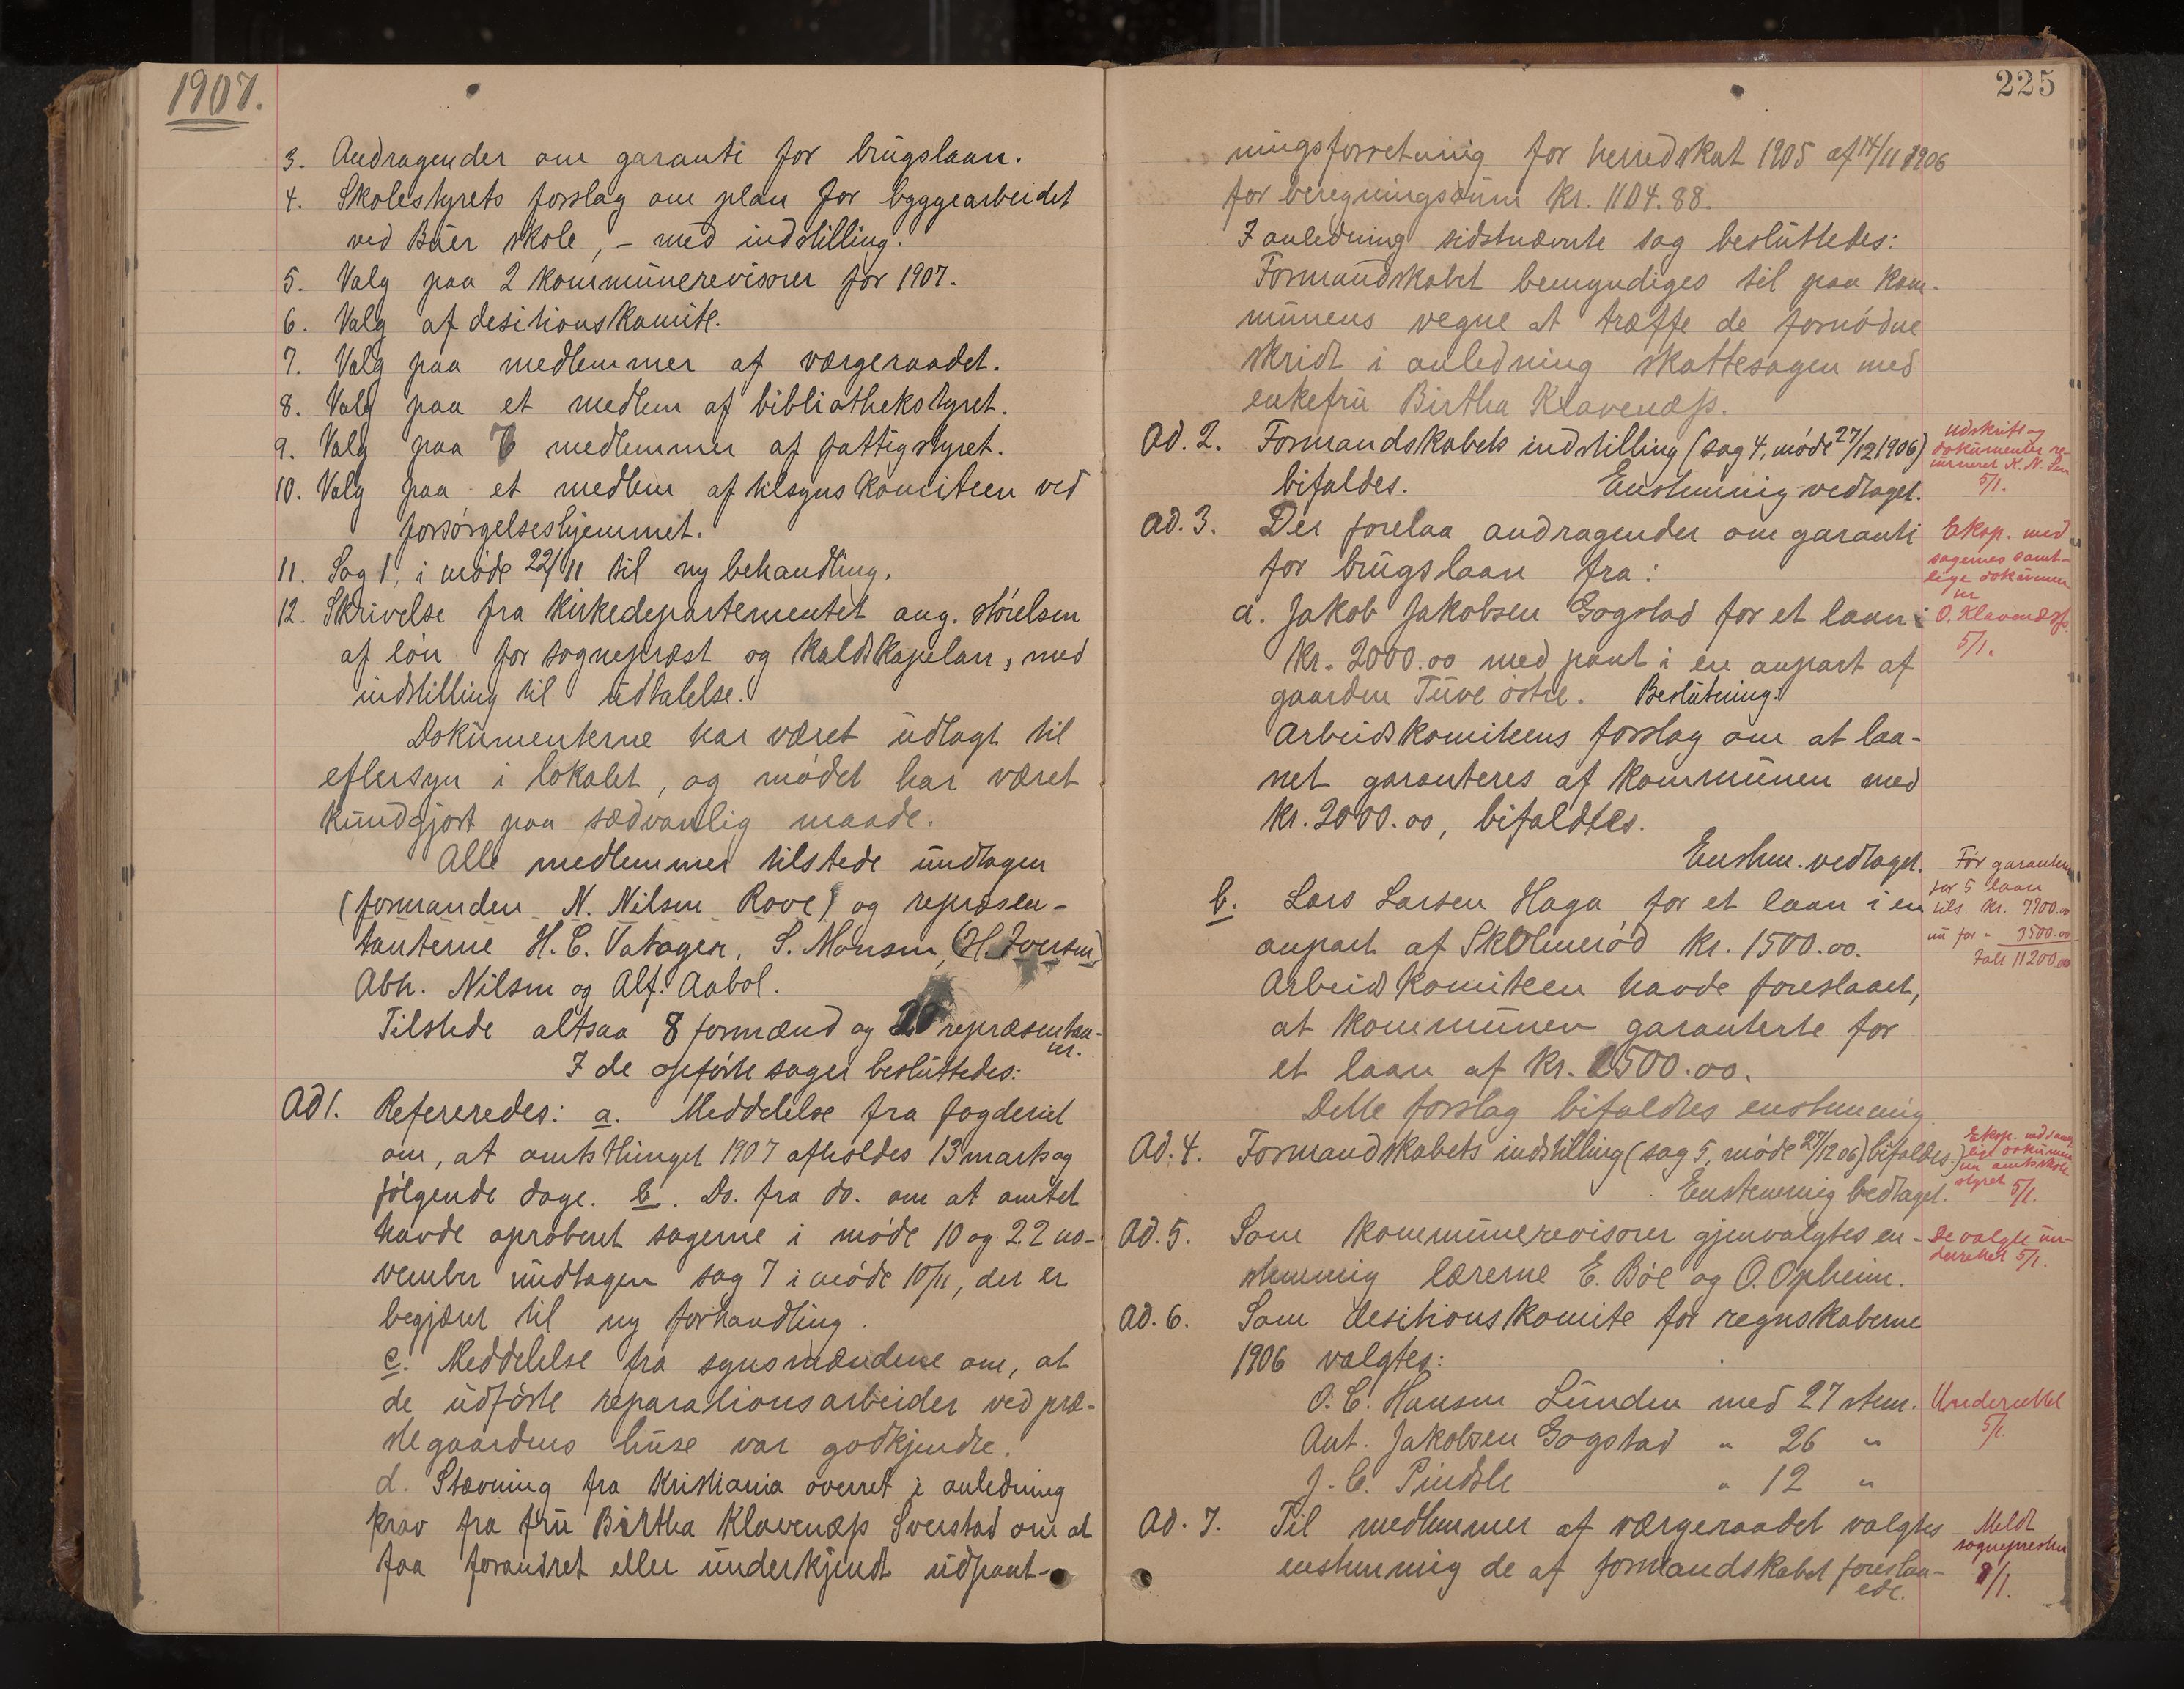 1907.
3. Andragender om garanti for brugslaan.
4. Skolestyrets forslag om plan for byggearbeidet
ved Buer skole, – med indstilling.
5. Valg paa 2 kommunerevisorer for 1907.
6. Valg af desitionskomite.
7. Valg paa medlemmer af værgeraadet.
8. Valg paa et medlem af bibliothekstyret.
9. Valg paa medlemmer af fattigstyret.
10. Valg paa et medlem af tilsynskomiteen ved
forsørgelseshjemmet.
11. Sag 1, i møde 22/11 til ny behandling.
12. Skrivelse fra kirkedepartementet ang. størelsen
af løn for sogneprest og kaldskapelan, med
indstilling til udtalelse.
Dokumenterne har været udlagt til
eftersyn i lokalet, og mødet har været
kundgjort paa sædvanlig maade.
Alle medlemmer tilstede undtagen
(formanden N. Nilsen Rove) og repræsen-
tanterne H. C. Vatager, S. Monsen, (H. Iversen)
Abh. Nilsen og Alf. Aabol.
Tilstede altsaa 8 formænd og 20 repræsentan-
ter.
I de opførte sager besluttedes:
Ad 1. Refereredes: a. Meddelelse fra fogderiet
om, at amtsthinget 1907 afholdes 13 marts og
følgende dage. b. Do. fra do. om at amtet
havde aprobert sagerne i møde 10 og 22 no-
vember undtagen sag 7 i møde 10/11, der er
begjæret til ny forhandling.
c. Meddelelse fra synsmændene om, at
de udførte reparationsarbeider ved præ-
stegaardens huse var godkjendte.
d. Stævning fra Kristiania overret i anledning
krav fra fru Birtha Klavenæss Sverstad om at
faa forandret eller underkjendt udpant-
225
ningsforretning for herredskat 1905 af 14/11 1906
for beregningssum kr. 1104.88.
I anledning sidstnævnte sag besluttedes:
Formandskabet bemyndiges til paa kom-
munens vegne at træffe de fornødne
skridt i anledning skattesagen med
enkefru Birtha Klavenæss.
Ad. 2. Formandskabets indstilling (sag 4, møde 27/12 1906)
bifaldes. Enstemmig vedtaget.
Udskrift og
dokumenter re-
turneret K. N.
5/1.
Ad. 3. Der forelaa andragender om garanti
for brugslaan fra:
Eksp. med
sagernes samt-
lige dokumen
O. Klavenæss
5/1.
a. Jakob Jakobsen Gogstad for et laan
kr. 2000.00 med pant i en anpart af
gaarden Tuve østre. Beslutning:
Arbeidskomiteens forslag om at laa-
net garanteres af kommunen med
kr. 2000.00, bifaldtes.
Enstem. vedtaget.
Før garanteret
for 5 laan
tils. kr. 7700.00
nu for " 3500.00
Ialt 11200.00
b. Lars Larsen Haga for et laan i en
anpart af Skolmerød kr. 1500.00.
Arbeidskomiteen havde foreslaaet,
at kommunen garanterte for
et laan af kr. 1500.00.
Dette forslag bifaldtes enstemmig
Ad. 4. Formandskabets indstilling (sag 5, møde 27/12 06) bifaldes.)
Enstemmig vedtaget.
Eksp. med samt
lige dokumen
amtsskole
styret 5/1.
Ad. 5. Som kommunerevisorer gjenvalgtes en-
stemmig lærerne E. Bøe og O. Opheim.
De valgte un-
derrettet 5/1.
Ad. 6. Som desitionskomite for regnskaberne
1906 valgtes:
O. C. Hansen Lunden med 27 stem.
Ant. Jakobsen Gogstad " 26 "
J. C. Pindsle " 12 "
Underrettet
5/1.
Ad. 7. Til medlemmer af værgeraadet valgtes
enstemmig de af formandskabet foreslaa-
ede.
Meldt
sognepresten
8/1.